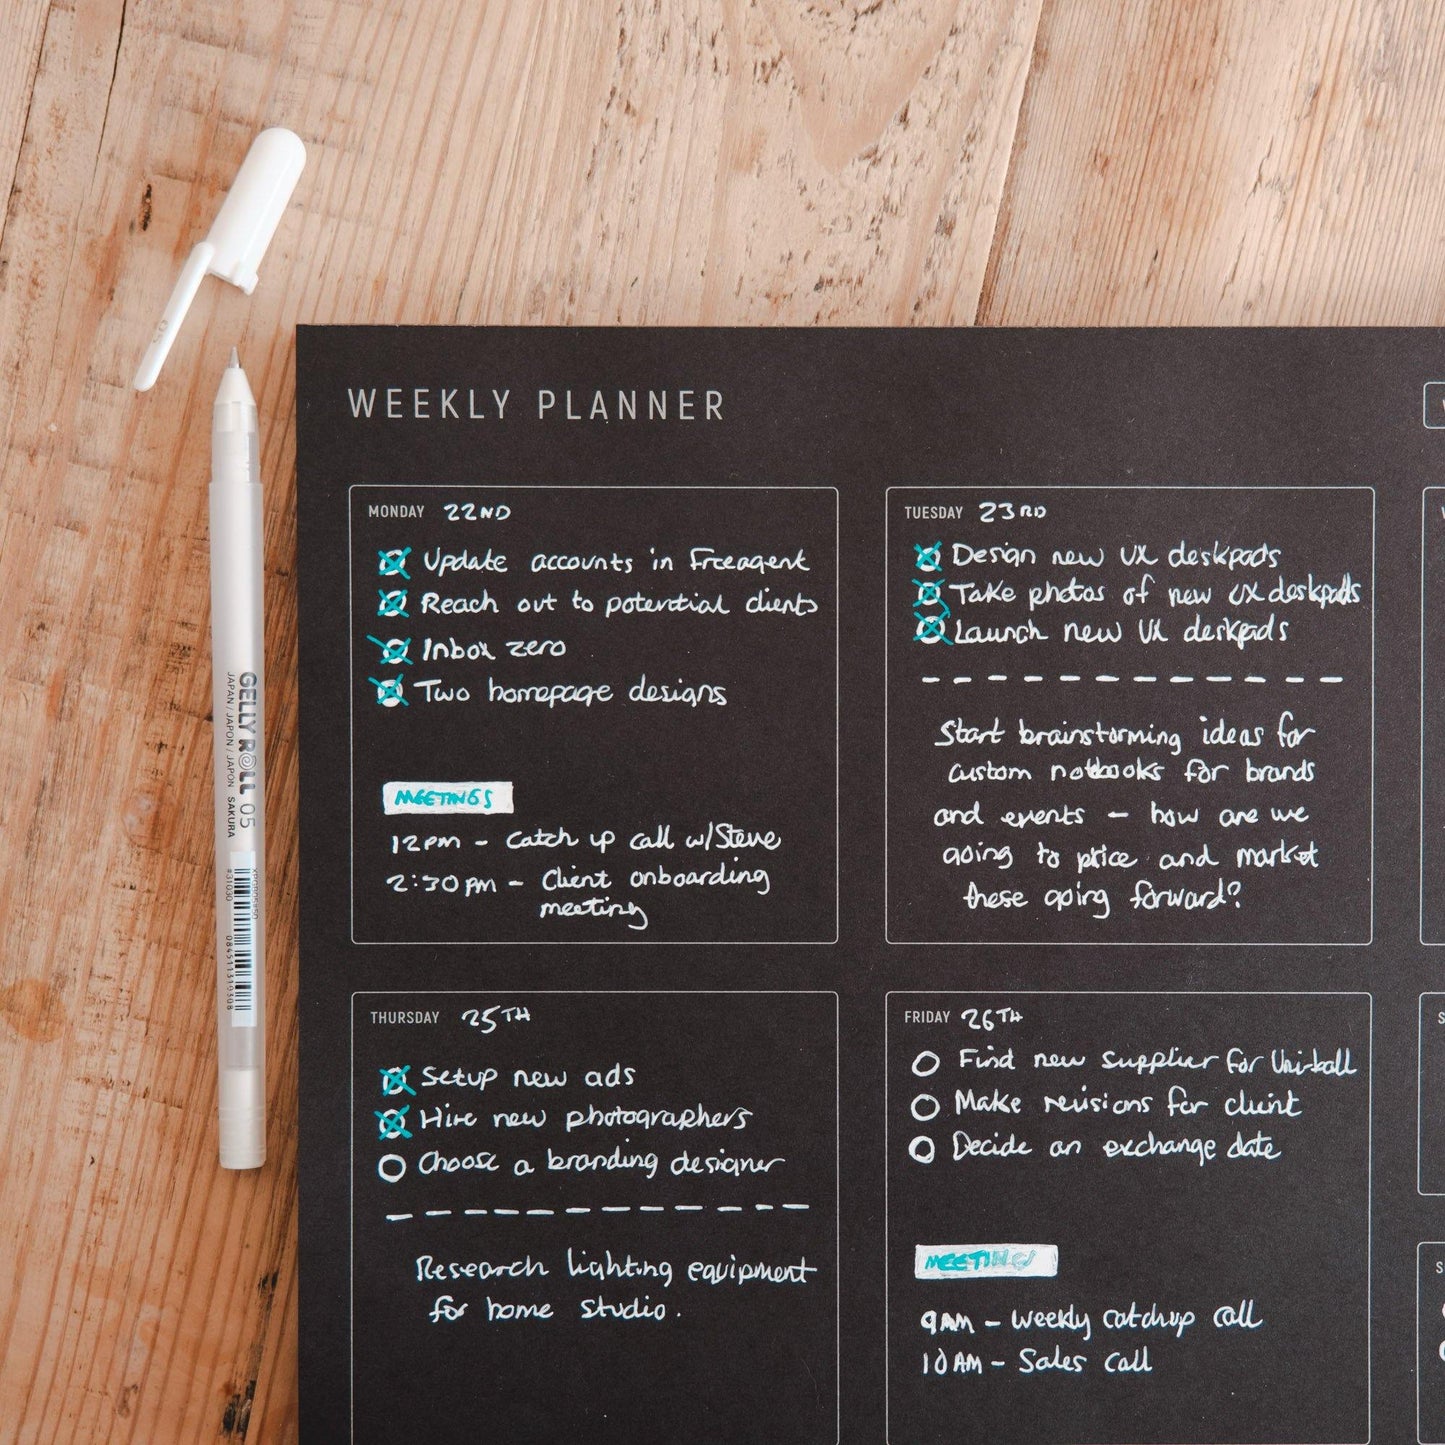 05
GELLY ROLL 05
JAPAN / JAPON / JAPON SAKURA
#31030
WEEKLY PLANNER
MONDAY 22ND
Update accounts in Freeagent
Reach out to potential clients
Inbox zero
Two homepage designs
MEETINGS
12PM - Catch up call w/Steve
2:30PM - Client onboarding
meeting
TUESDAY 23RD
Design new UX deskpads
Take photos of new UX deskpads
Launch new UX deskpads
Start brainstorming ideas for
custom notbooks for brands
and events - how are we
going to price and market
these going forward?
THURSDAY 25TH
Setup new ads
Hire new photographers
Choose a branding designer
Research lighting equipment
for home studio.
FRIDAY 26TH
Find new supplier for Uni-ball
Make revisions for client
Decide an exchange date
MEETINGS
9AM - Weekly catchup call
10AM - Sales call